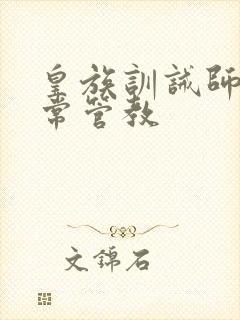 皇族訓誡師
常管教
文錦石